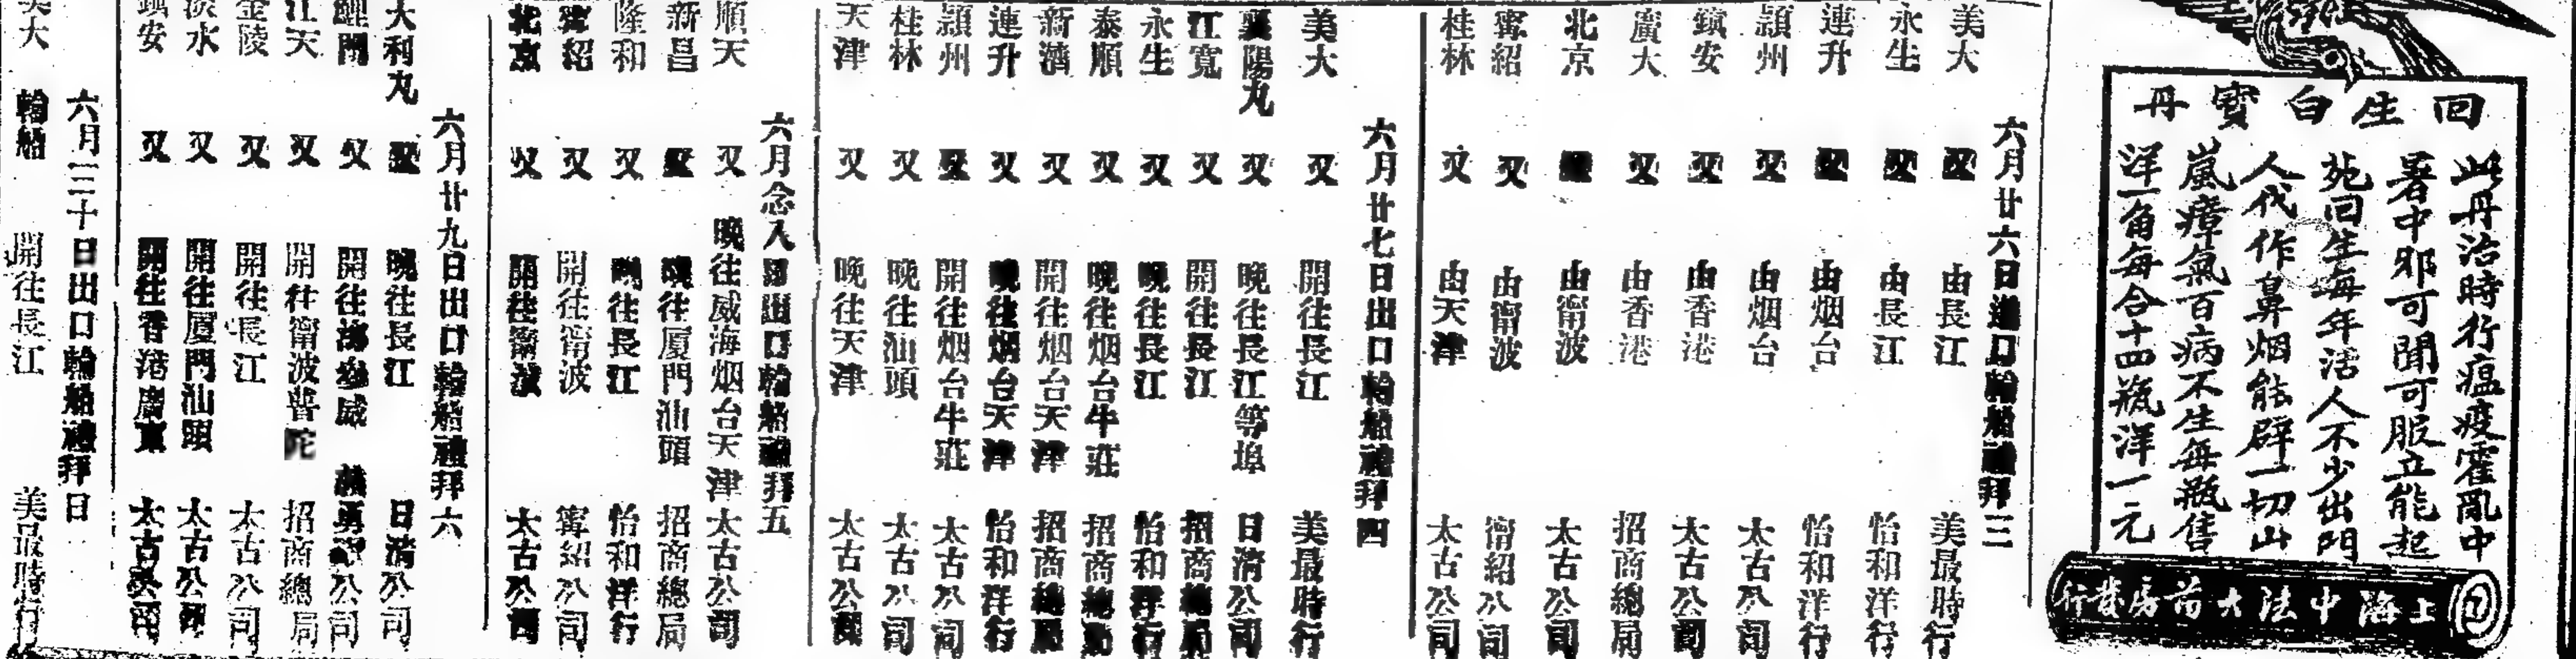 回生白寶丹
此丹治時行瘟疫霍亂中
暑中邪可聞可服立能起
死回生每年活人不少出門
人代作鼻烟能辟一切山
嵐瘴氣百病不生每瓶售
洋一角每合十四瓶洋一元
上海中法大药房發行
六月廿六日進口輪船禮拜三
美大 又 由長江 美最時行
永生 又 由長江 怡和洋行
連升 又 由烟台 怡和洋行
潁州 又 由烟台 太古公司
鎮安 又 由香港 太古公司
廣大 又 由香港 招商總局
北京 由甯波 太古公司
寗紹 又 由甯波 甯紹公司
桂林 又 由天津 太古公司
六月廿七日出口輪船禮拜四
美大 又 開往長江 美最時行
襄陽丸 又 晚往長江等埠 日清公司
江寬 又 開往長江 招商總局
永生 又 晚往長江 怡和洋行
泰順 又 晚往烟台牛莊 招商總局
新濟 又 開往烟台天津 招商總局
連升 又 晚往烟台天津 怡和洋行
潁州 又 開往烟台牛莊 太古公司
桂林 又 晚往汕頭 太古公司
天津 又 晚往天津 太古公司
六月念八日出口輪船禮拜五
順天 又 晚往威海烟台天津 太古公司
新昌 又 晚往厦門汕頭 招商總局
隆和 又 晚往長江 怡和洋行
寗紹 又 開往甯波 寗紹公司
北京 又 開往甯波 太古公司
六月廿九日出口輪船禮拜六
大利丸 又 晚往長江 日清公司
又 開往 威 勇 公司
江天 又 開往甯波普陀 招商總局
金陵 又 開往長江 太古公司
淡水 又 開往厦門汕頭 太古公司
鎮安 又 開往香港廣東 太古公司
六月三十日出口輪船禮拜日
美大 輪船 開往長江 美最時行